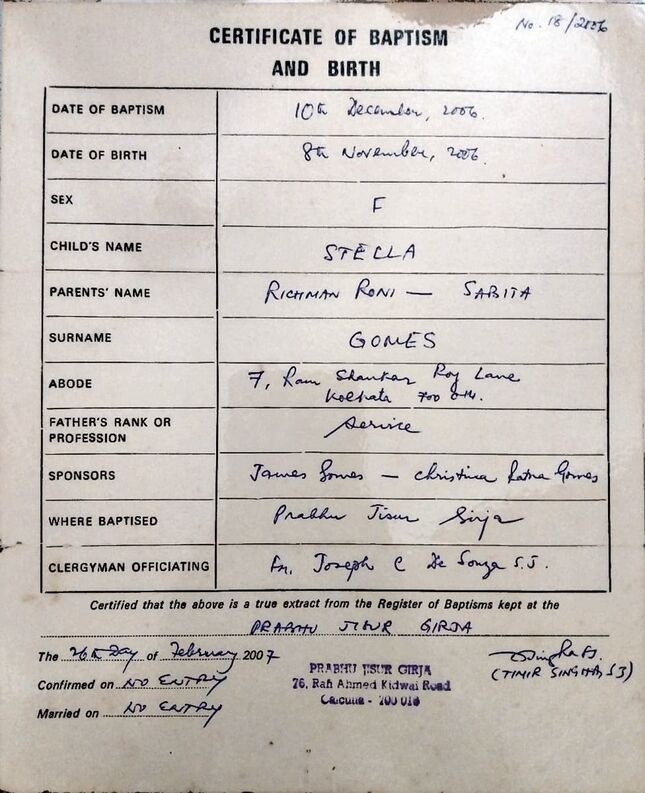 No. 18/2006
CERTIFICATE OF BAPTISM
AND BIRTH
DATE OF BAPTISM 10th December, 2006.
DATE OF BIRTH 8th November, 2006.
SEX F
CHILD'S NAME STELLA
PARENTS' NAME RICHMAN RONI — SABITA
SURNAME GOMES
ABODE 7, Ram Shankar Roy Lane
Kolkata 700 014.
FATHER'S RANK OR
PROFESSION Service
SPONSORS James Gomes — Christina Ratna Gomes
WHERE BAPTISED Prabhu Jisur Girja
CLERGYMAN OFFICIATING Fr. Joseph C De Souza S.J.
Certified that the above is a true extract from the Register of Baptisms kept at the
PRABHU JISUR GIRJA
The 26th Day of February 2007
Confirmed on NO ENTRY
Married on NO ENTRY
PRABHU JISUR GIRJA
76, Rafi Ahmed Kidwai Road
Calcutta - 700 016
(TIMIR SINGHA, SJ)